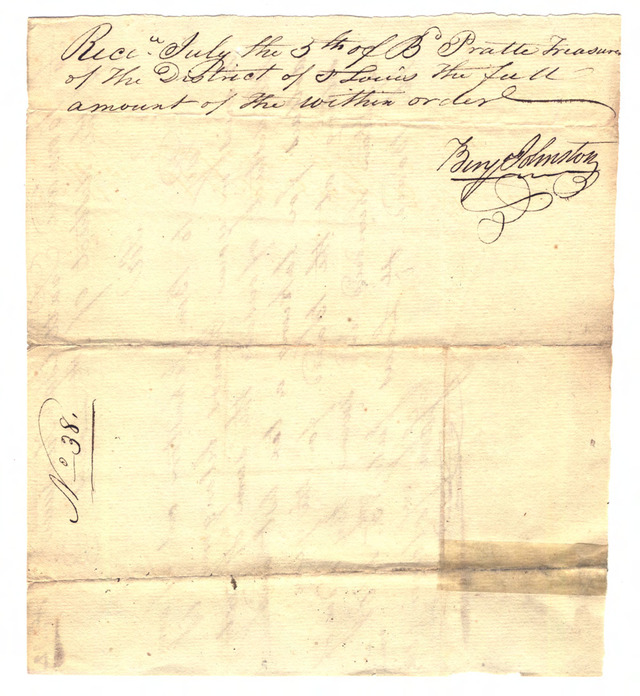 Recd. July the 5th of Bd Pratte Treasurer
of the District of St Louis the full
amount of the within order
Benj Johnston
No 38.